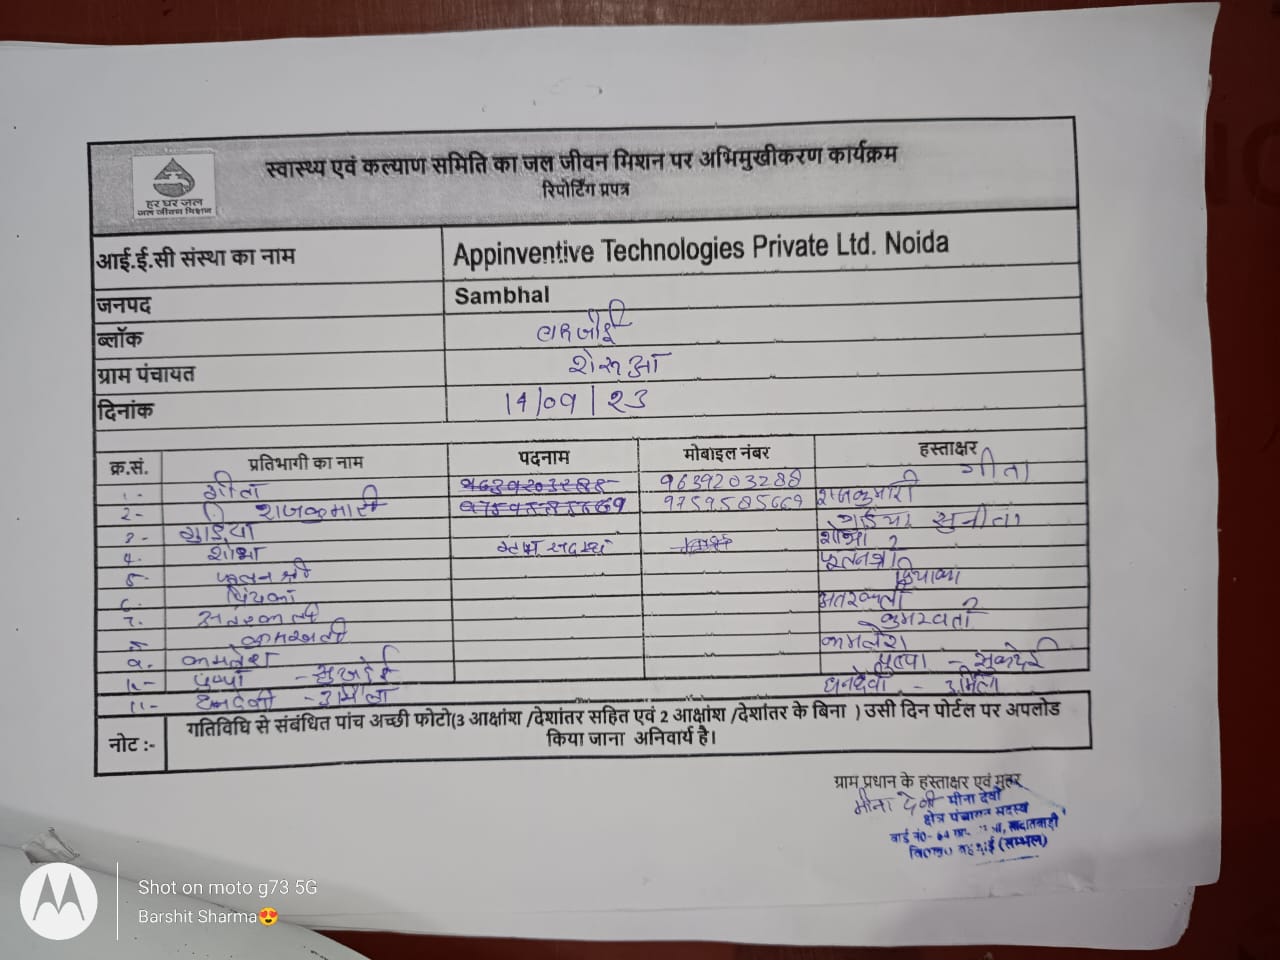 स्वास्थ्य एवं कल्याण समिति का जल जीवन मिशन पर अभिमुखीकरण कार्यक्रम
रिपोर्टिंग प्रपत्र
हर घर जल
जल जीवन मिशन
आई.ई.सी संस्था का नाम Appinventive Technologies Private Ltd. Noida
जनपद Sambhal
ब्लॉक
ग्राम पंचायत शेरूआ
दिनांक 14/09/23
क्र.सं. प्रतिभागी का नाम पदनाम मोबाइल नंबर हस्ताक्षर
1- गीता 9639203288 गीता
2- राजकुमारी 9759585669 राजकुमारी
3- गुड़िया सुनीता
4. शोभा शोभा
5
6.
7.
8 कमरवती
9. कमलेश कमलेश
10- पुष्पा - सुखदेई पुष्पा - सुखदेई
11- धनदेवी - उर्मिला धनदेवी - उर्मिला
नोट :- गतिविधि से संबंधित पांच अच्छी फोटो(3 आक्षांश /देशांतर सहित एवं 2 आक्षांश /देशांतर के बिना ) उसी दिन पोर्टल पर अपलोड
किया जाना अनिवार्य है।
ग्राम प्रधान के हस्ताक्षर एवं मुहर
मीना देवी मीना देवी
क्षेत्र पंचायत सदस्य
वार्ड नं०-
(सम्भल)
Shot on moto g73 5G
Barshit Sharma😍